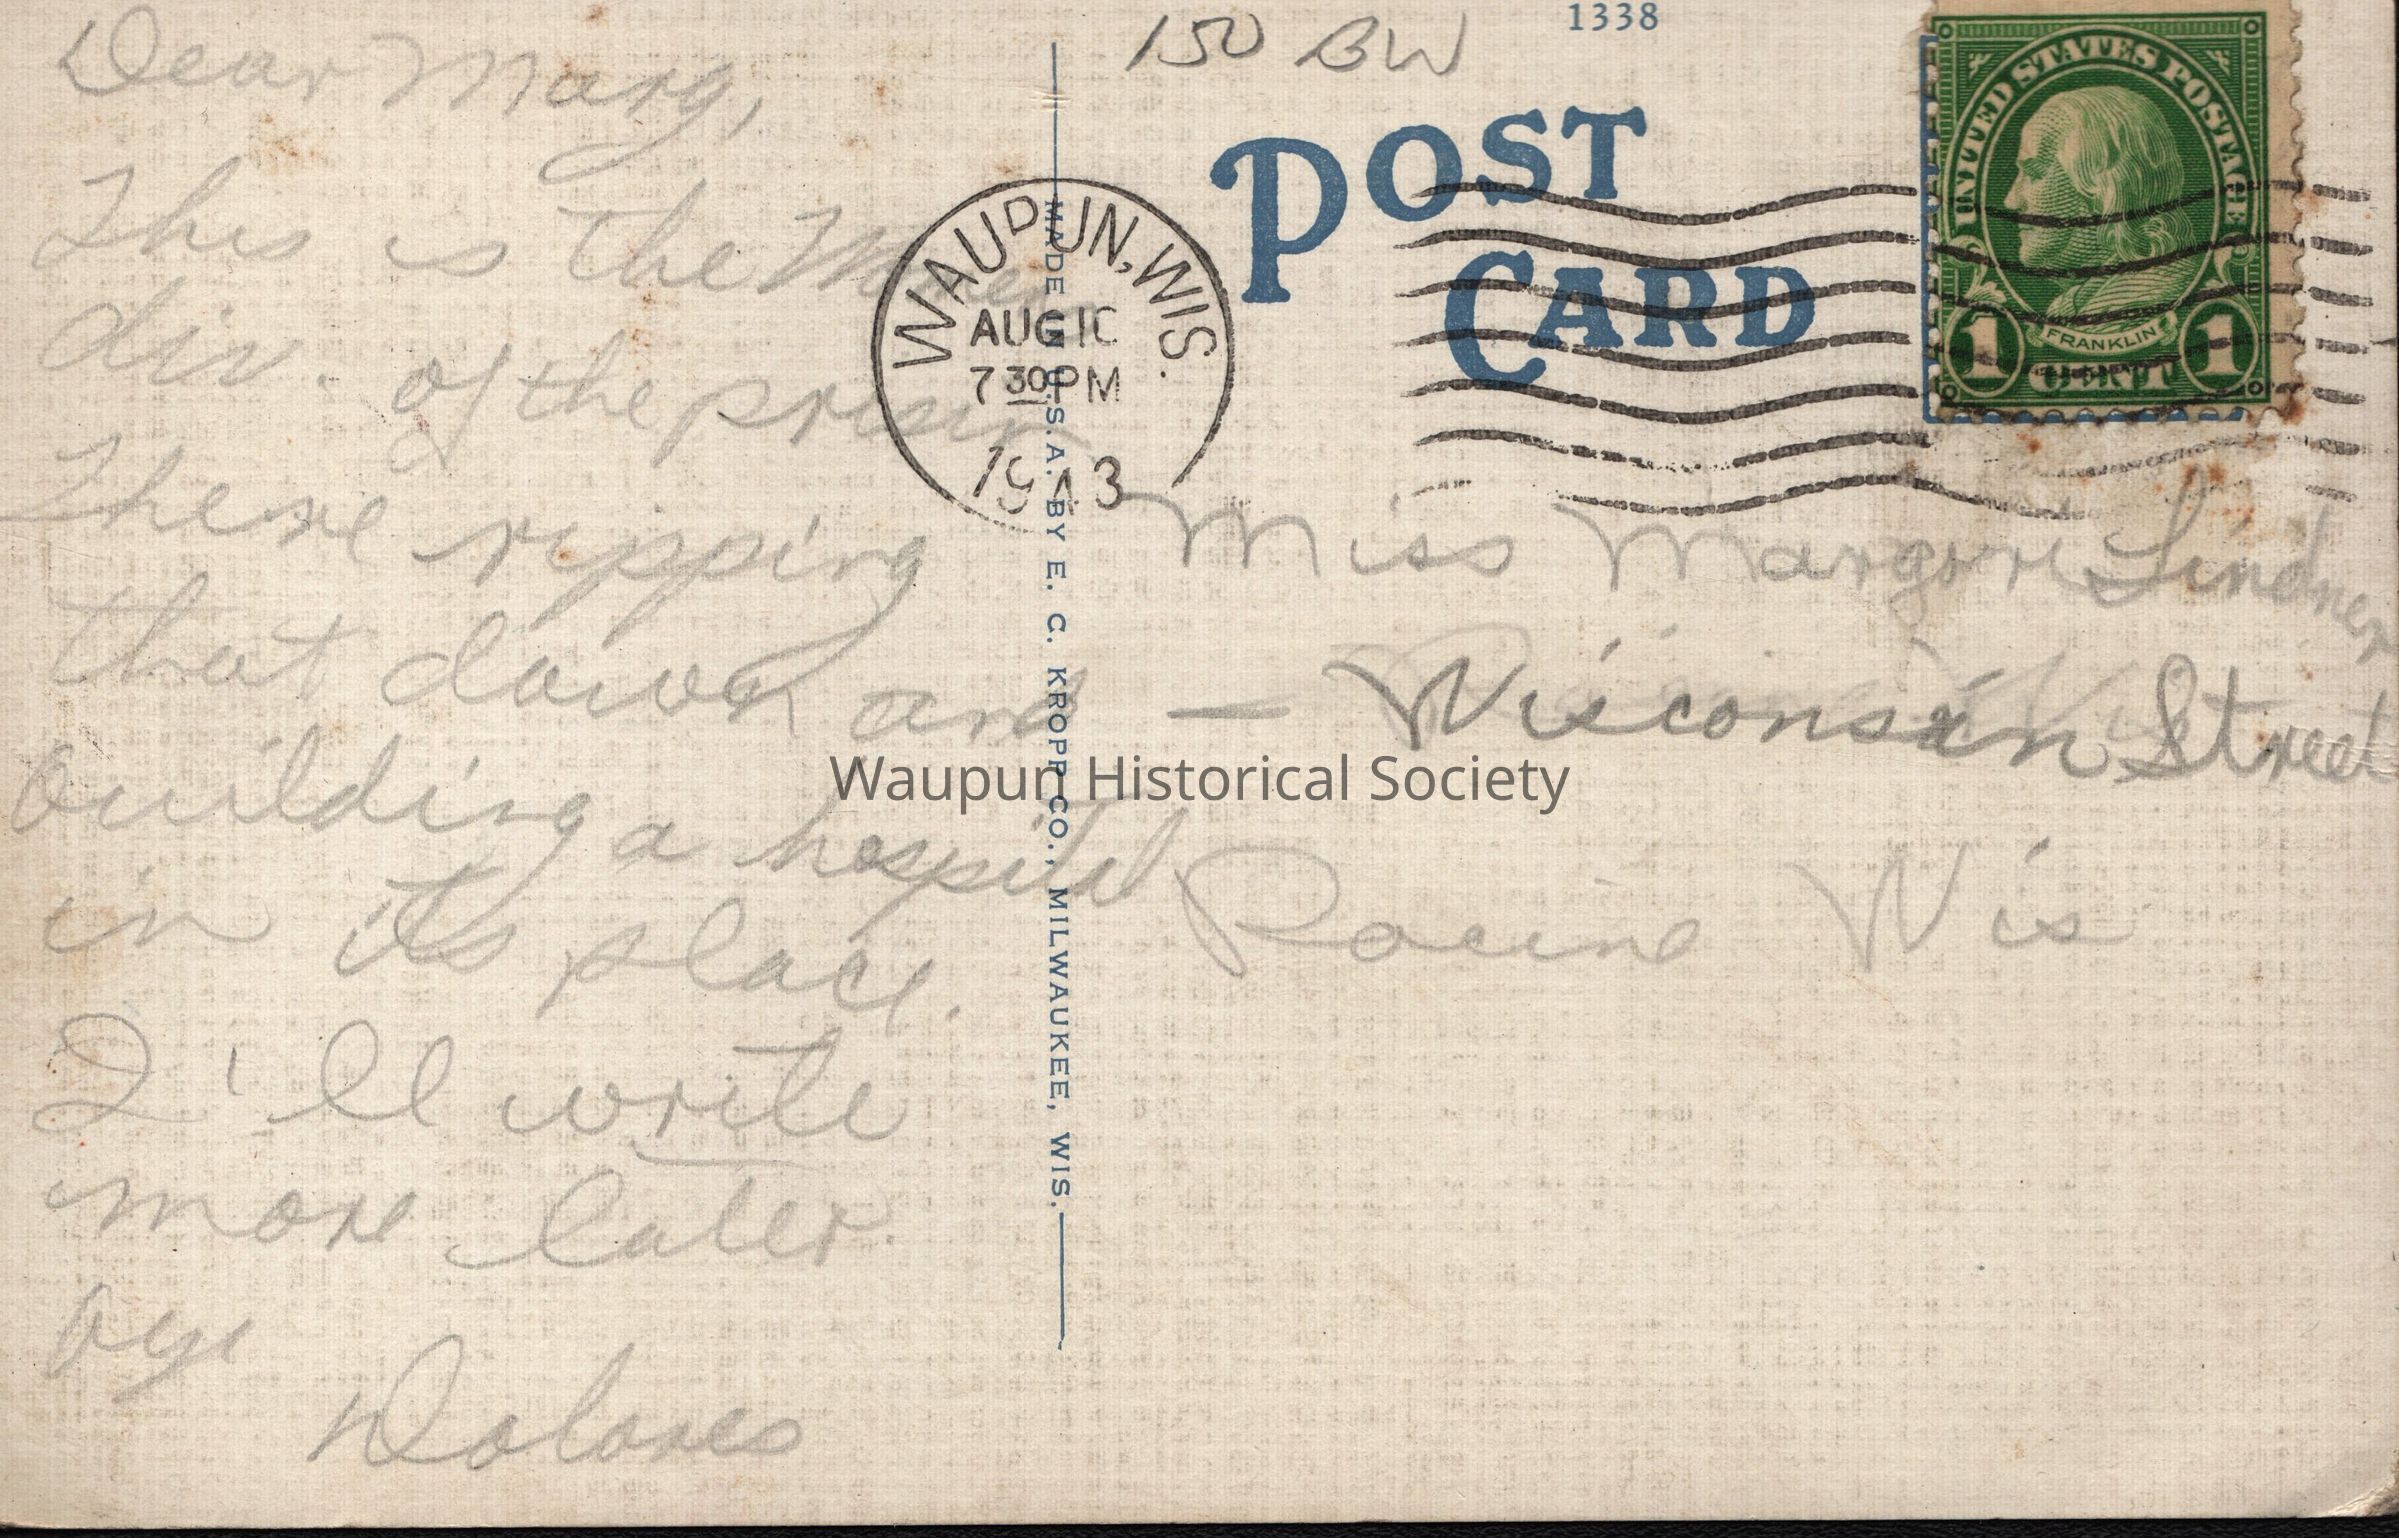 Dear Marg,
This is the
div. of the prison
There ripping
that down and
building a hospital
in its place.
I'll write
more later.
bye
Dolores
150 BW
1338
POST
CARD
WAUPUN, WIS.
AUG 10
7 30 PM
1943
UNITED STATES POSTAGE
FRANKLIN
1 CENT 1
MADE IN U.S.A. BY E. C. KROPP CO., MILWAUKEE, WIS.
Miss Margorie Lindner
— Wisconsin Street
Racine Wis
Waupun Historical Society